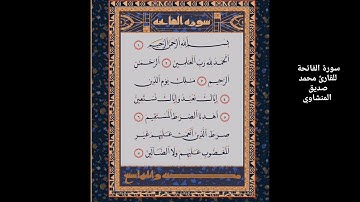 سورة الفاتحة
بسم الله الرحمن الرحيم ١
الحمد لله رب العلمين ٢ الرحمن
الرحيم ٣ ملك يوم الدين
٤ إياك نعبد وإياك نستعين
٥ اهدنا الصرط المستقيم ٦
صرط الذين أنعمت عليهم غير
المغضوب عليهم ولا الضالين ٧
سورة الفاتحة
للقارئ محمد
صديق
المنشاوى